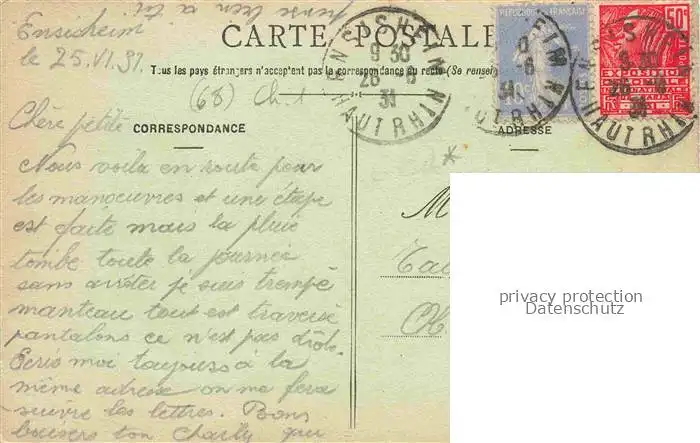 pense bien à toi
Ensisheim
le 25.VI.31
CARTE POSTALE
Tous les pays étrangers n'acceptent pas la correspondance au recto (Se rensei
(68)
ENSISHEIM
9 30
26 -6
31
HAUT RHIN
REPUBLIQUE FRANÇAISE
50c
EXPOSITION
COLONIALE
INTERNATIONALE
PARIS 1931
Chère petite
CORRESPONDANCE
ADRESSE
Nous voila en route pour
les manoeuvres et une étape
est faite mais la pluie
tombe toute la journée
sans arrêter je suis trempé
manteau tout est traversé
pantalons ce n'est pas drôle.
Ecris moi toujours à la
même adresse on me fera
suivre les lettres. Bons
baisers ton Charly qui
M
privacy protection
Datenschutz